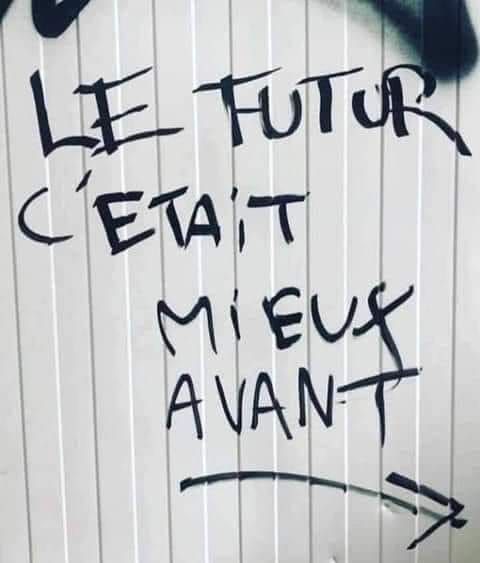 LE FUTUR
C'ETAIT
MIEUX
AVANT